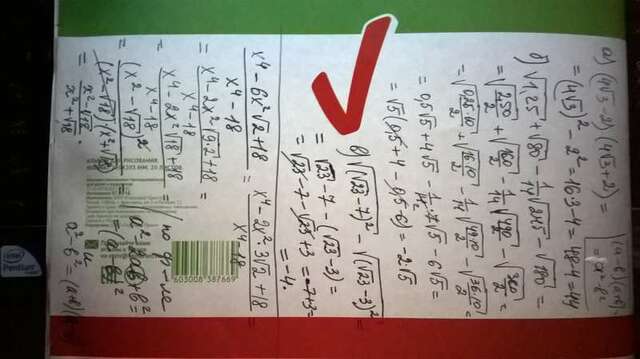 а) (4√3-2)(4√3+2)=
(a-b)(a+b)=
=a²-b²
=(4√3)²-2²=16·3-4=48-4=44
б) √1,25+√80-1/14√245-√180=
=√(2,50/2)+√(160/2)-1/14√(490/2)-√(360/2)=
=√(0,25·10/2)+√(16·10/2)-1/14√(49·10/2)-√(36·10/2)=
=0,5√5+4√5-1/14·7√5-6√5=
=√5(0,5+4-0,5-6)=-2√5
в) √(√23-7)²-√(√23-3)²=
=√23-7-(√23-3)=
=√23-7-√23+3=-7+3=
=-4.
(x⁴-6x²√2+18)/(x⁴-18)=(x⁴-2x²·3√2+18)/(x⁴-18)=
=(x⁴-2x²√(9·2)+18)/(x⁴-18)=
=(x⁴-2x²√18+18)/(x⁴-18)
=(x²-√18)²/((x²-√18)·(x²+√18))
=(x²-√18)/(x²+√18).
по фр-ле
a²-2ab+b²
=(a-b)²
и
a²-b²=(a+b)